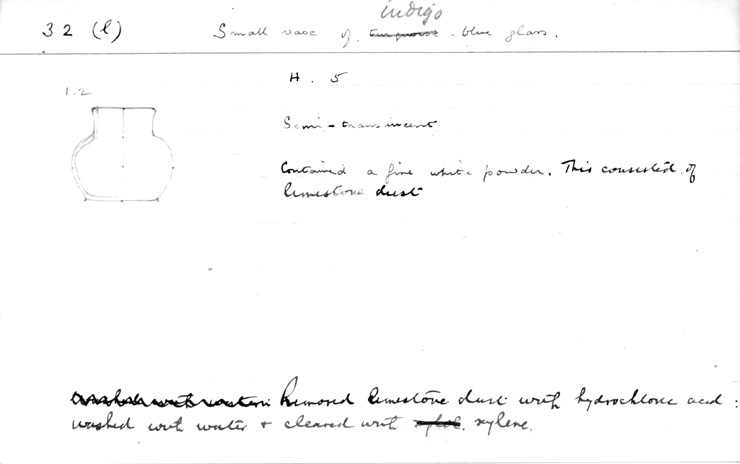 indigo
32 (l) Small vase of turquoise - blue glass.
H. 5
1.2
Semi-translucent
Contained a fine white powder. This consisted of
limestone dust
Washed with water: Removed limestone dust with hydrochloric acid:
washed with water + cleared with xylol. xylene.